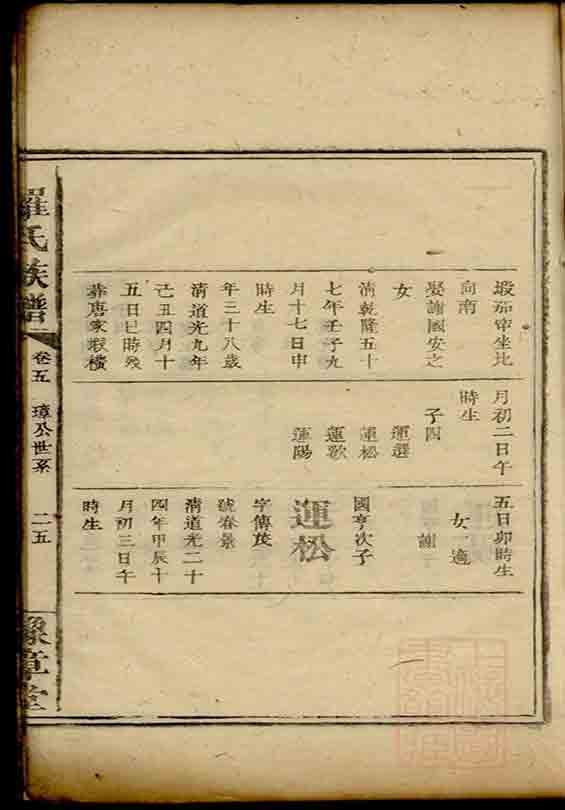 塅茄窜坐北
向南
娶謝國安之
女
清乾隆五十
七年壬子九
月十七日申
時生
年三十八歲
清道光九年
己丑四月十
五日巳時殁
葬唐家塅橫
月初二日午
時生
子四
運選
運松
運歌
運陽
五日卯時生
女一適
謝
國亨次子
運松
字傳茂
號春景
清道光二十
四年甲辰十
月初三日午
時生
羅氏族譜
卷五
璋公世系
二五
豫章堂